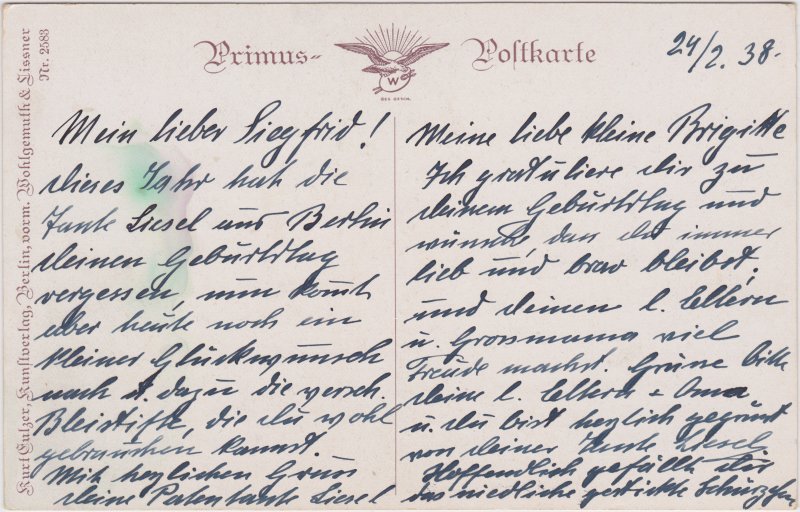 Primus- Postkarte
24/2. 38.
W
Kurt Eulzer, Kunstverlag, Berlin, vorm. Wohlgemuth & Lissner
Nr. 2583
Mein lieber Siegfrid!
Dieses Jahr hat die
Tante Liesel aus Berlin
deinen Geburtstag
vergessen, nun komt
aber heute noch ein
kleiner Glückwunsch
nach u. dazu die versch.
Bleistifte, die du wohl
gebrauchen kannst.
Mit herzlichen Gruss
deine Patentante Liesel
Meine liebe kleine Brigitte
Ich gratuliere dir zu
deinem Geburtstag und
wünsche, dass du immer
lieb und brav bleibst,
und deinen l. Eltern
u. Grossmama viel
Freude machst. Grüsse bitte
deine l. Eltern + Oma
u. du bist herzlich gegrüsst
von deiner Tante Liesel.
Hoffendlich gefällt dir
das niedliche gestickte Schürzchen